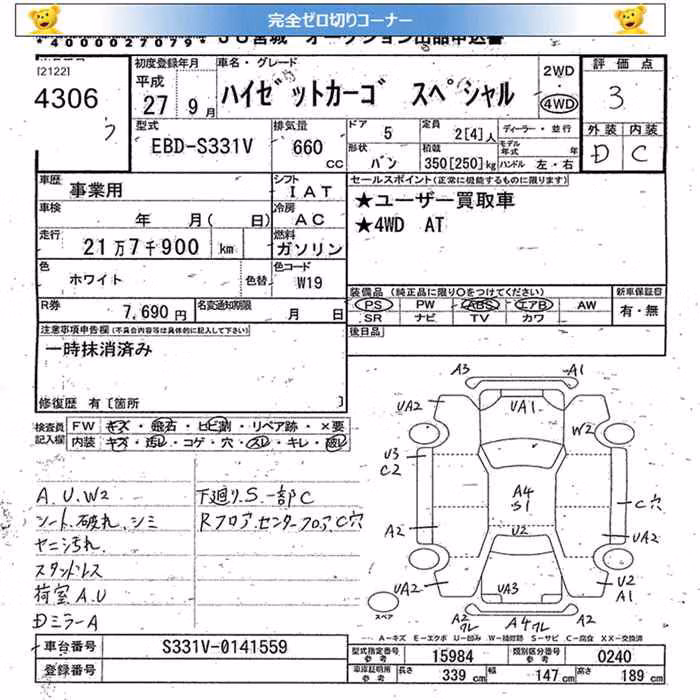 完全ゼロ切りコーナー
*4000027079* JU宮城 オークション出品申込書
[2122]
4306
初度登録年月
平成
27 9月
車名・グレード
ハイゼットカーゴ スペシャル
2WD
・
4WD
評価点
3
外装 内装
D C
型式
EBD-S331V
排気量
660
CC
ドア
5
定員
2[4]人
ディーラー・並行
形状
バン
積載
350[250]kg
モデル年式 年
ハンドル 左・右
車歴
事業用
シフト
IAT
車検
年 月( 日)
冷房
AC
走行
21万7千900 km
燃料
ガソリン
色
ホワイト
色替
色コード
W19
R券
7,690円
名変通知期限
月 日
セールスポイント(正常に機能するものに限ります)
★ユーザー買取車
★4WD AT
装備品(純正品に限り○をつけてください)
PS PW ABS エアB AW
SR ナビ TV カワ
新車保証書
有・無
後日品
注意事項申告欄(不具合内容等は具体的に記入して下さい)
一時抹消済み
修復歴 有[箇所 ]
検査員記入欄
FW キズ・飛石・ヒビ割・リペア跡・×要
内装 キズ・汚レ・コゲ・穴・スレ・キレ・破レ
A.U.W2
シート、破れ、シミ
ヤニ汚れ
スタッドレス
荷室A.U
DミラーA
下廻りS.一部C
Rフロア.センターフロアC穴
A3 A1
UA2 UA1 W2
U3
C2
A4
S1
C穴
A2 U2 UA2
UA2 UA3 U2
A1
スペア
A2
ワレ
A4ワレ A2
A-キズ E-エクボ U-凹み W-補修跡 S-サビ C-腐食 XX-交換済
車台番号
S331V-0141559
登録番号
型式指定番号
参考
15984
類別区分番号
参考
0240
車庫証明用
参考
長さ 339cm 幅 147cm 高さ 189cm